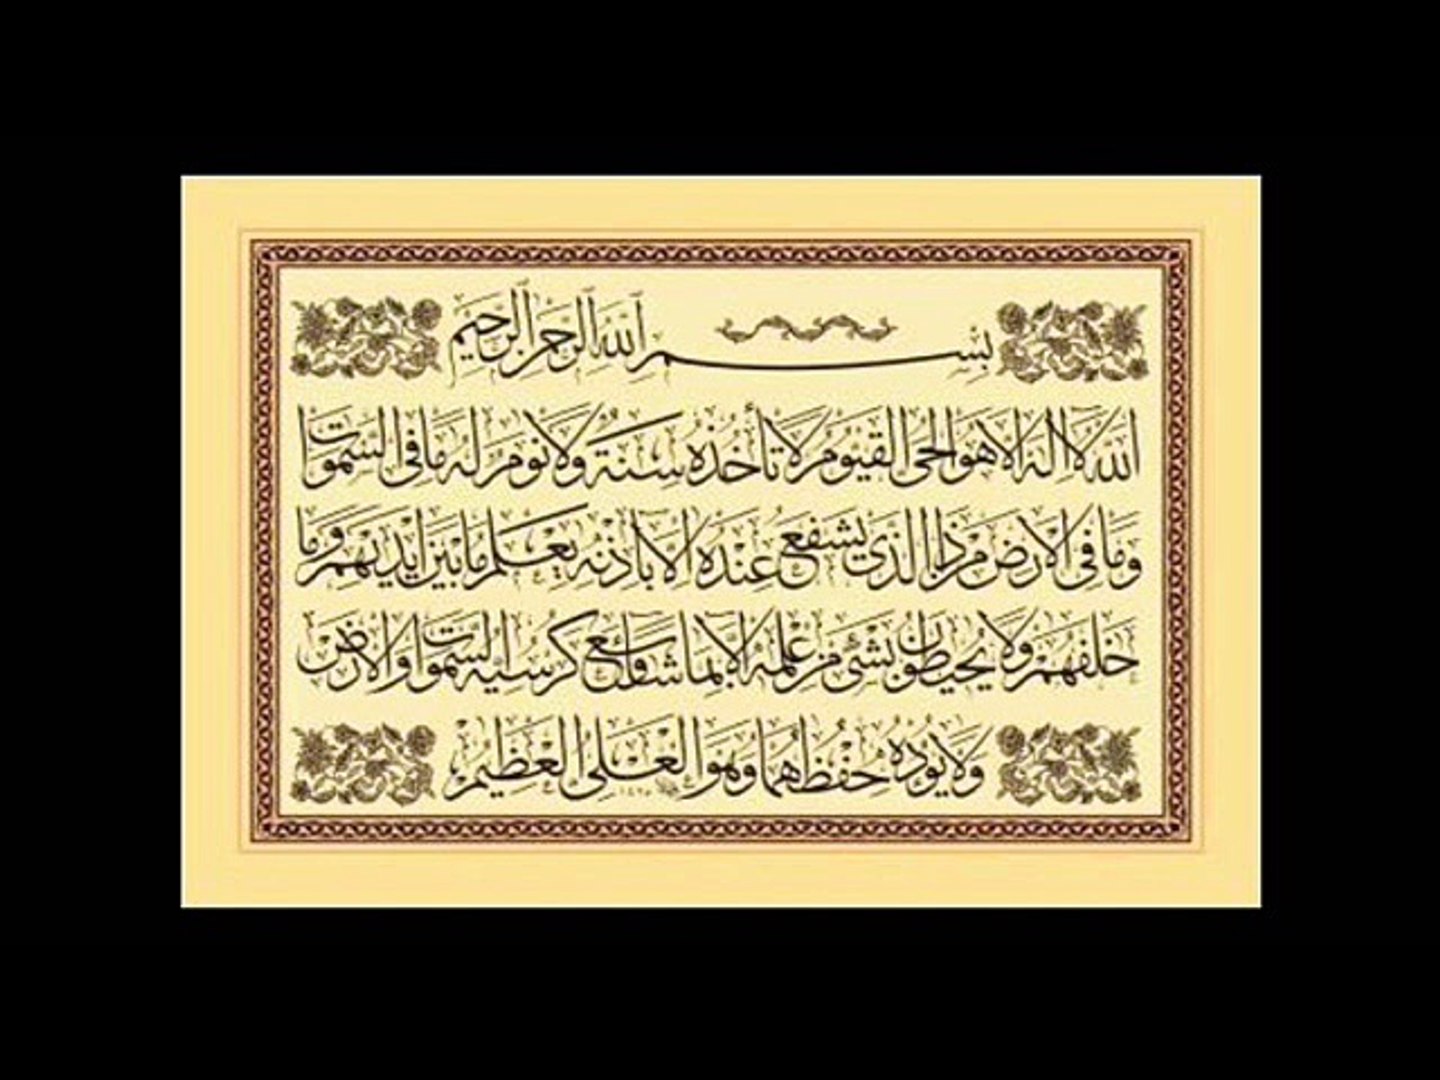 بِسْمِ اللهِ الرَّحْمٰنِ الرَّحِيْمِ
اَللهُ لَا اِلٰهَ اِلَّا هُوَ الْحَيُّ الْقَيُّوْمُ لَا تَأْخُذُهُ سِنَةٌ وَلَا نَوْمٌ لَهُ مَا فِي السَّمٰوَاتِ
وَمَا فِي الْاَرْضِ مَنْ ذَا الَّذِيْ يَشْفَعُ عِنْدَهُ اِلَّا بِاِذْنِهِ يَعْلَمُ مَا بَيْنَ اَيْدِيْهِمْ وَمَا
خَلْفَهُمْ وَلَا يُحِيْطُوْنَ بِشَيْءٍ مِنْ عِلْمِهِ اِلَّا بِمَا شَاءَ وَسِعَ كُرْسِيُّهُ السَّمٰوَاتِ وَالْاَرْضَ
وَلَا يَؤُدُهُ حِفْظُهُمَا وَهُوَ الْعَلِيُّ الْعَظِيْمُ